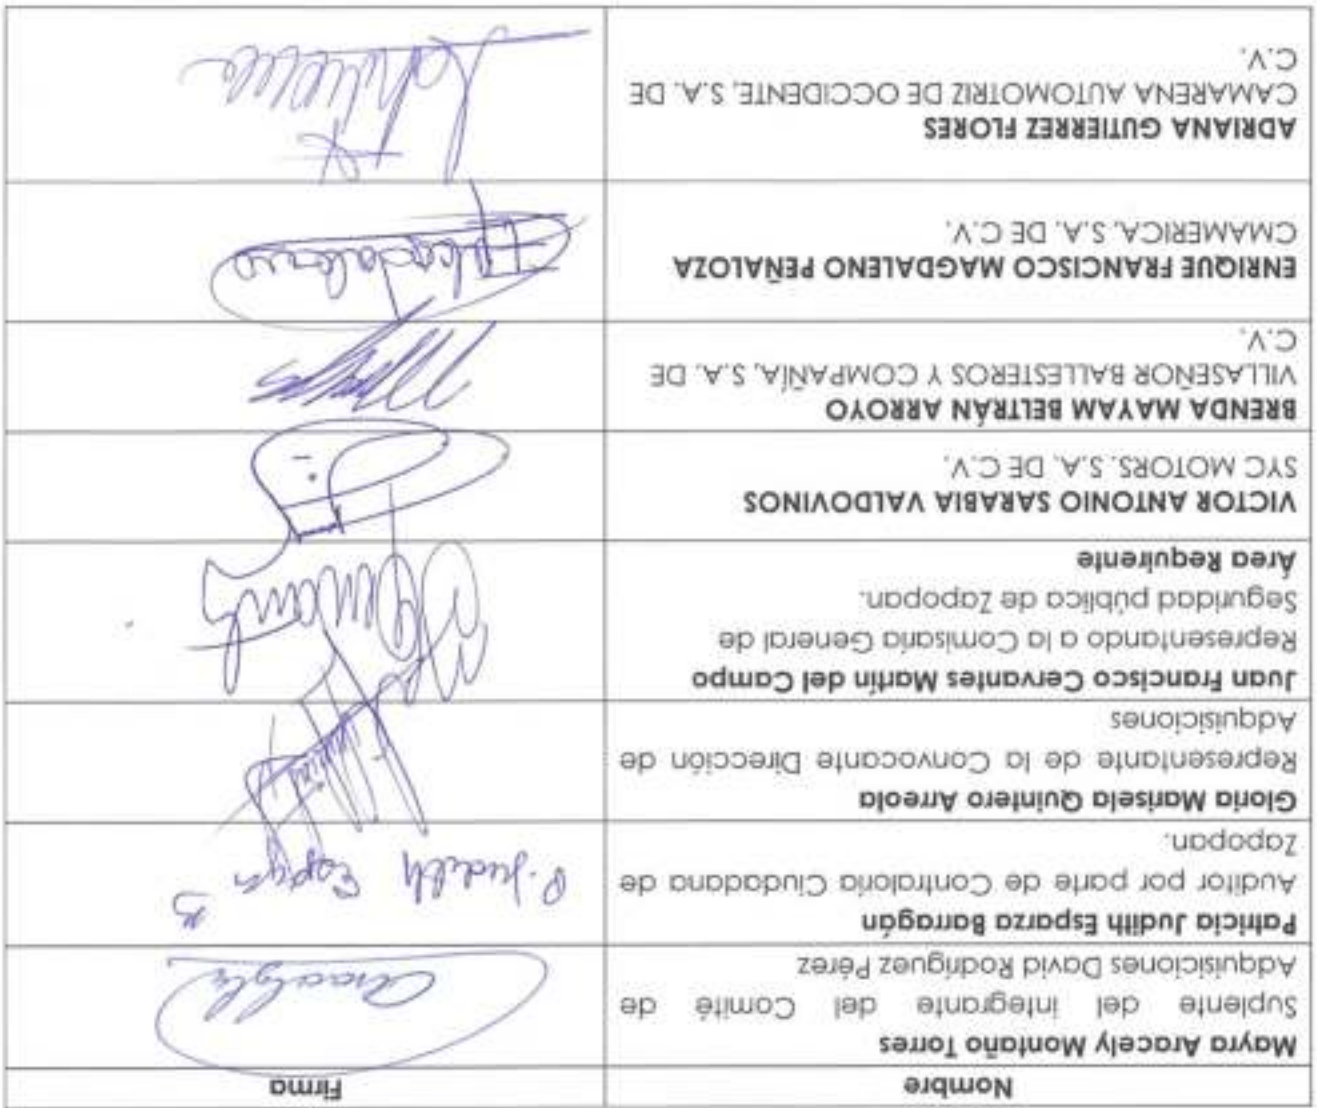 Nombre
Firma
Mayra Aracely Montaño Torres
Suplente del integrante del Comité de
Adquisiciones David Rodríguez Pérez
Aracely
Patricia Judith Esparza Barragán
Auditor por parte de Contraloría Ciudadana de
Zapopan.
P. Judith Esparza B
Gloria Marisela Quintero Arreola
Representante de la Convocante Dirección de
Adquisiciones
Juan Francisco Cervantes Martín del Campo
Representando a la Comisaria General de
Seguridad pública de Zapopan.
Área Requirente
VICTOR ANTONIO SARABIA VALDOVINOS
SYC MOTORS. S.A. DE C.V.
BRENDA MAYAM BELTRÁN ARROYO
VILLASEÑOR BALLESTEROS Y COMPAÑÍA, S.A. DE
C.V.
ENRIQUE FRANCISCO MAGDALENO PEÑALOZA
CMAMERICA, S.A. DE C.V.
ADRIANA GUTIERREZ FLORES
CAMARENA AUTOMOTRIZ DE OCCIDENTE, S.A. DE
C.V.